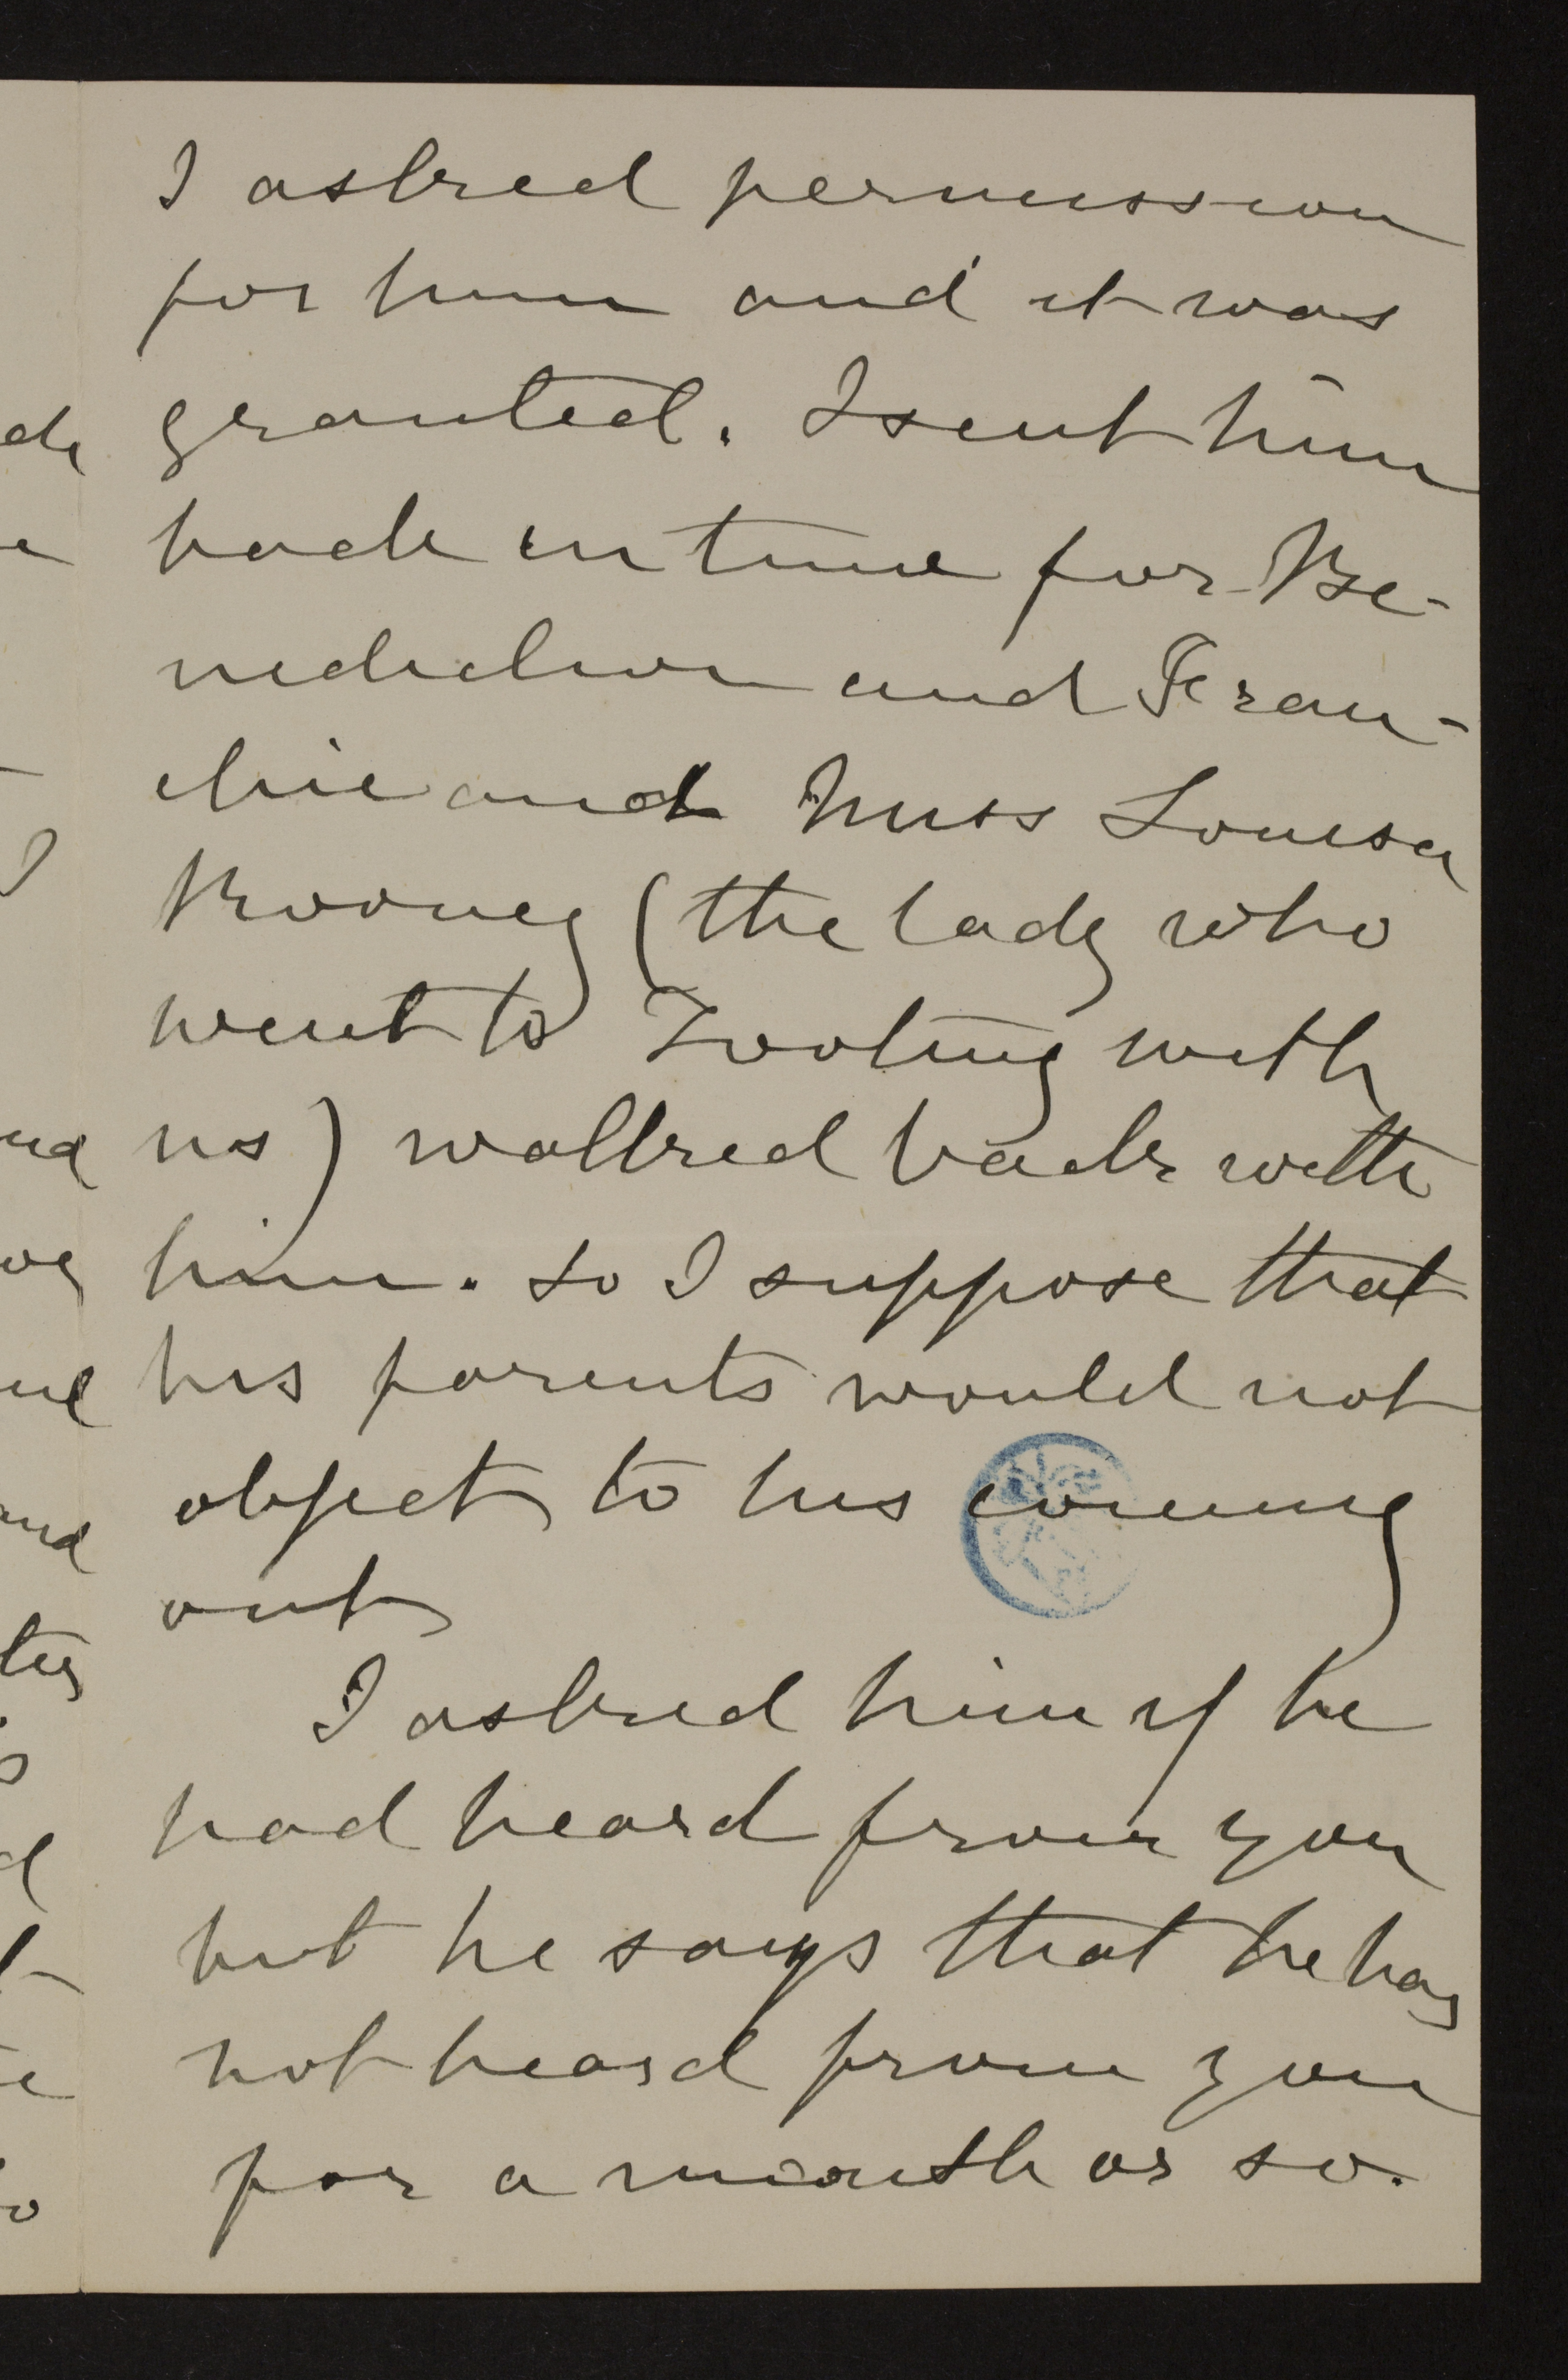 I asked permission
for him and it was
granted. I sent him
back in time for Be-
nediction and Fran-
chie and Miss Louisa
Mooney (the lady who
went to Tooting with
us) walked back with
him. So I suppose that
his parents would not
object to his coming
out
I asked him if he
had heard from you
but he says that he has
not heard from you
for a month or so.